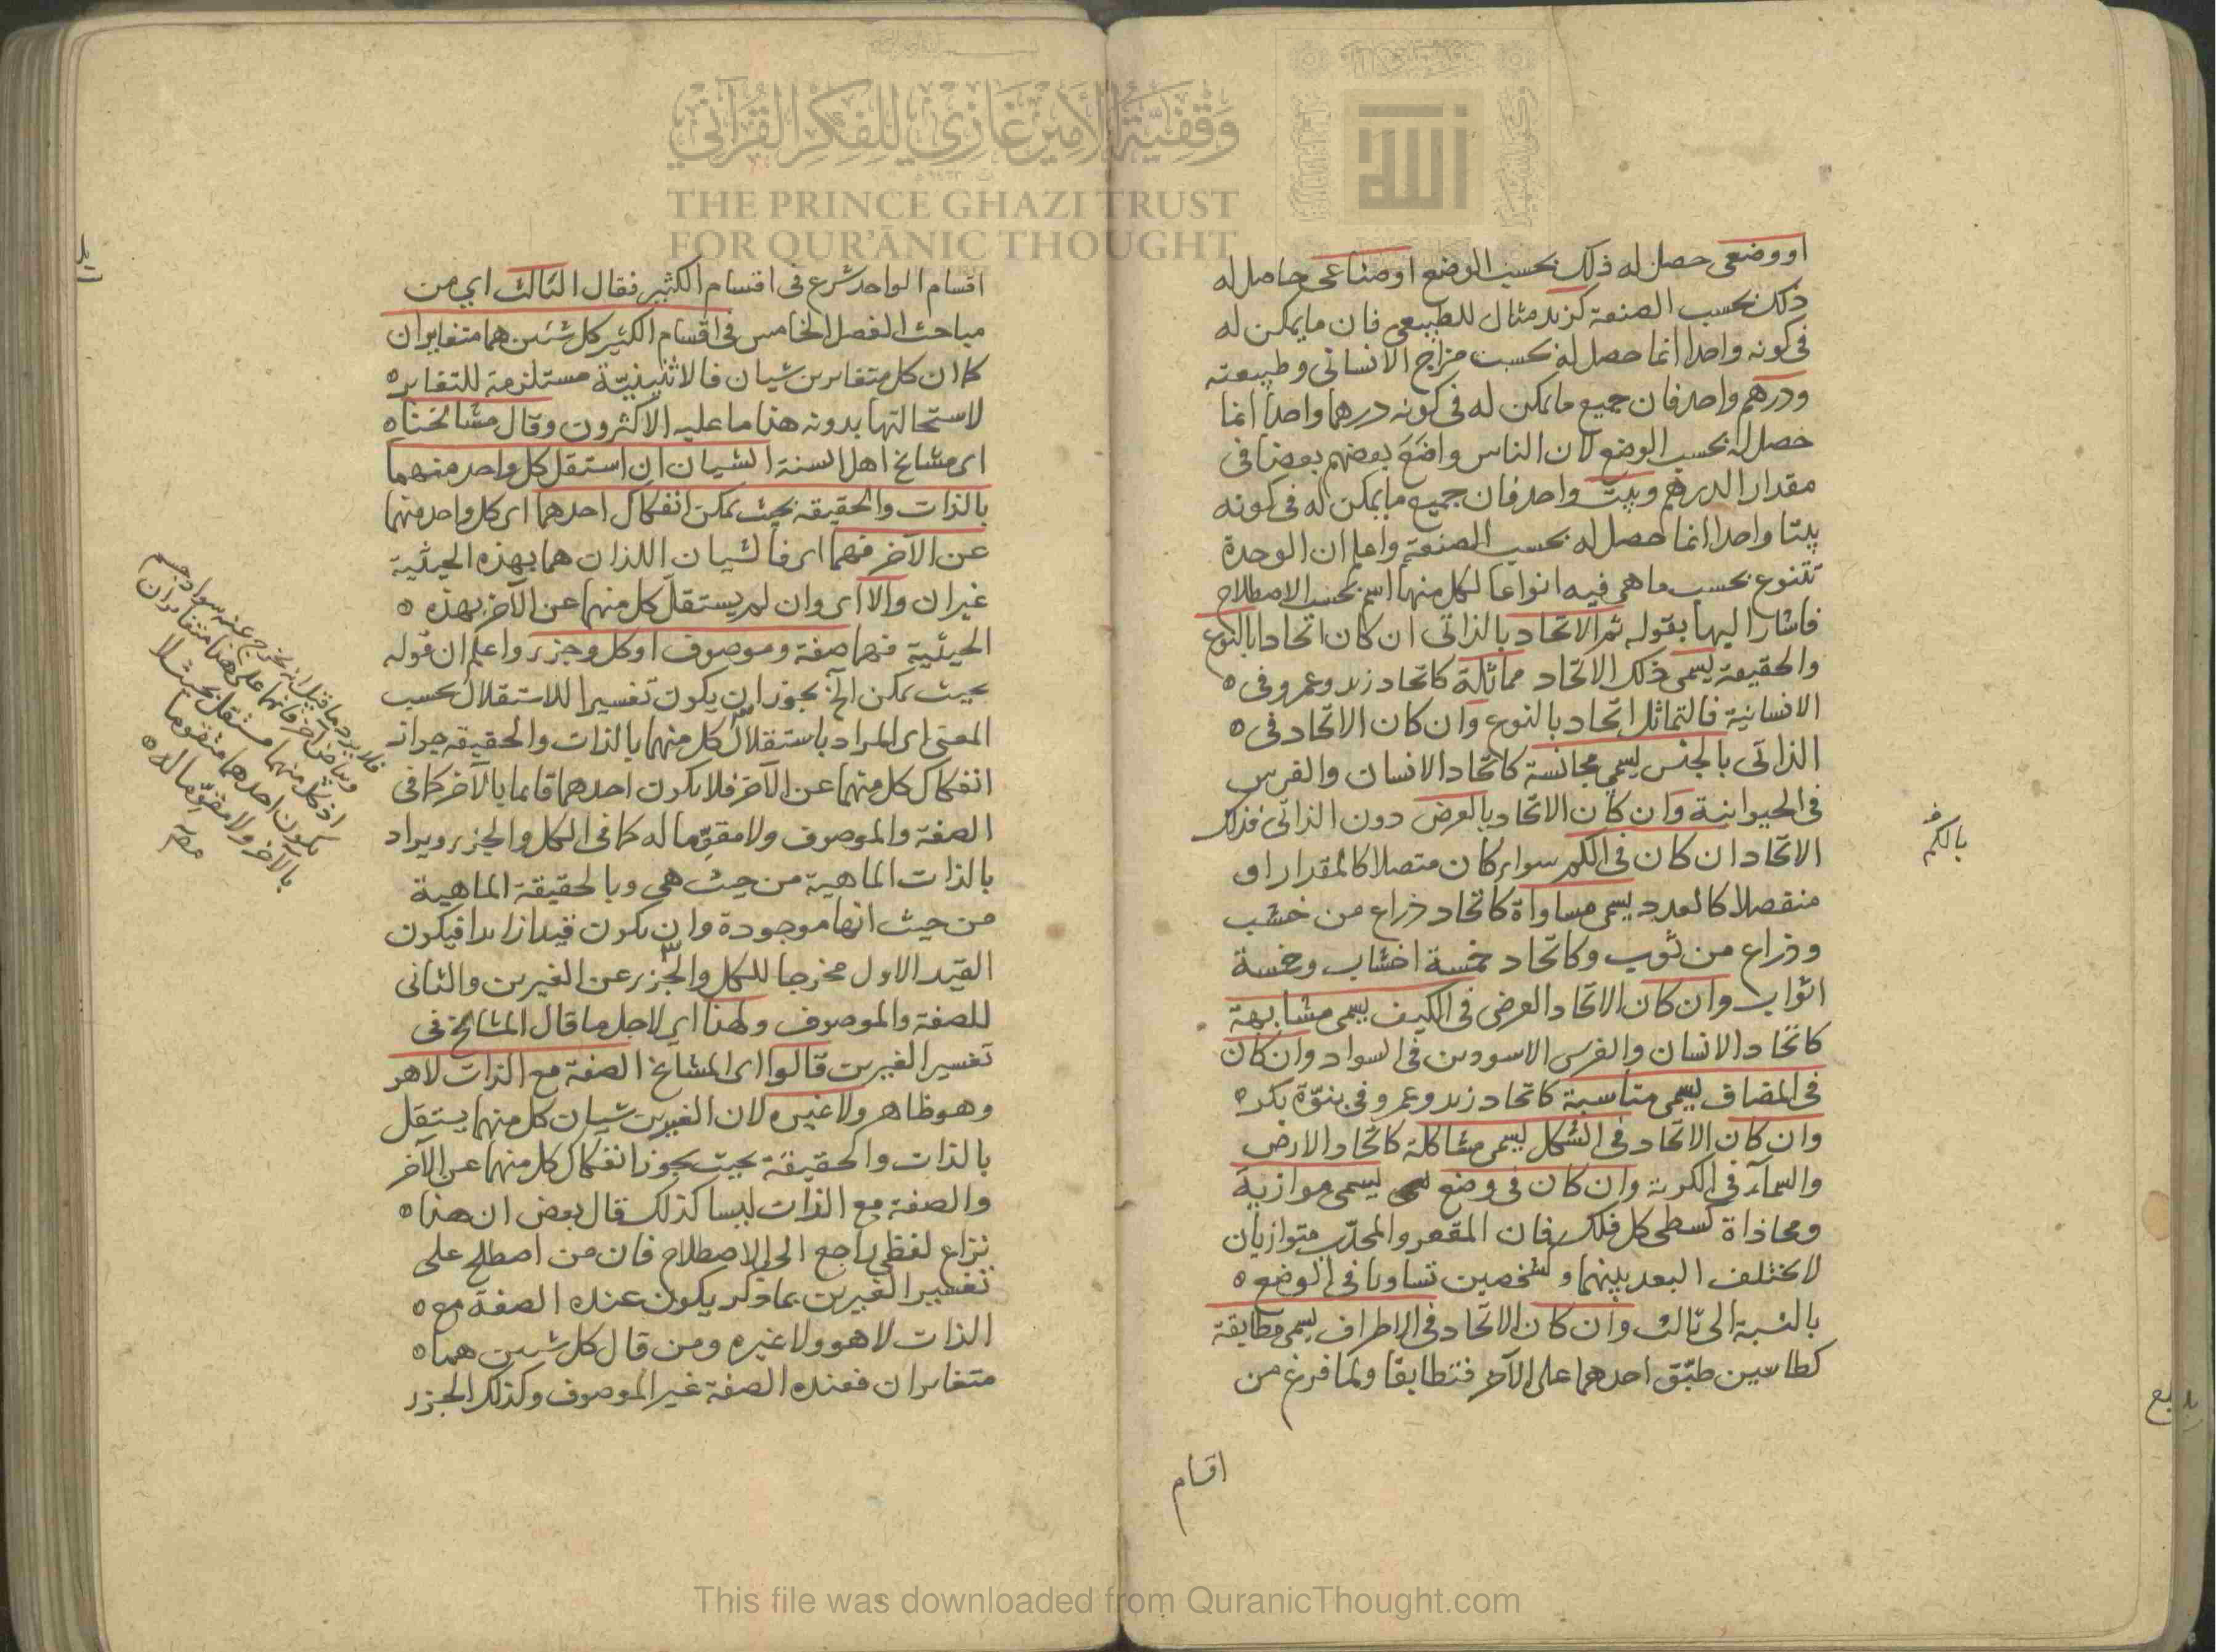 او وضعى حصل له ذلك بحسب الوضع او صناعى حاصل له
ذلك بحسب الصنعة كزيد مثال للطبيعى فان ما يمكن له
فى كونه واحدا انما حصل له بحسب مزاج الانسانى وطبيعته
ودرهم واحد فان جميع ما يمكن له فى كونه درهما واحدا انما
حصل له بحسب الوضع لان الناس واضَعَ بعضهم بعضا فى
مقدار الدرهم وبيت واحد فان جميع ما يمكن له فى كونه
بيتا واحدا انما حصل له بحسب الصنعة واعلم ان الوحدة
تتنوع بحسب ما هى فيه انواعا لكل منها اسم بحسب الاصطلاح
فاشار اليها بقوله ثم الاتحاد بالذاتى ان كان اتحادا بالنوع
والحقيقة يسمى ذلك الاتحاد مماثلة كاتحاد زيد وعمرو فى ٥
الانسانية فالتماثل اتحاد بالنوع وان كان الاتحاد فى ٥
الذاتى بالجنس يسمى مجانسة كاتحاد الانسان والفرس
فى الحيوانية وان كان الاتحاد بالعرض دون الذاتى فذلك
الاتحاد ان كان فى الكم سواء كان متصلا كالمقدار او
منفصلا كالعدد يسمى مساواة كاتحاد ذراع من خشب
وذراع من ثوب وكاتحاد خمسة اخشاب وخمسة
اثواب وان كان الاتحاد العرضى فى الكيف يسمى مشابهة
كاتحاد الانسان والفرس الاسودين فى السواد وان كان
فى المضاف يسمى مناسبة كاتحاد زيد وعمرو فى بنوّة بكر ٥
وان كان الاتحاد فى الشكل يسمى مشاكلة كاتحاد الارض
والسمآء فى الكرية وان كان فى وضع يسمى موازية
ومحاذاة كسطحى كل فلك فان المقعر والمحدّب متوازيان
لا يختلف البعد بينهما وشخصين تساويا فى الوضع ٥
بالنسبة الى ثالث وان كان الاتحاد فى الاطراف يسمى مطابقة
كطاسين طبّق احدهما على الآخر فتطابقا ولما فرغ من
اقسام
بالكم
اقسام الواحد شرع فى اقسام الكثير فقال الثالث اي من
مباحث الفصل الخامس فى اقسام الكثير كل شيئين هما متغايران
كما ان كل متغايرين شيئان فالاثنينيّة مستلزمة للتغاير ٥
لاستحالتها بدونه هذا ما عليه الاكثرون وقال مشائخنا ٥
اى مشائخ اهل السنة الشيئان ان استقل كل واحد منهما
بالذات والحقيقة بحيث يمكن انفكاك احدهما اى كل واحد منهما
عن الآخر فهما اى فالشيئان اللذان هما بهذه الحيثية
غيران والا اى وان لم يستقل كل منهما عن الآخر بهذه ٥
الحيثية فهما صفة وموصوف او كل وجزء واعلم ان قوله
بحيث يمكن الخ يجوز ان يكون تفسيرا للاستقلال بحسب
المعنى اى المراد باستقلال كل منهما بالذات والحقيقة جواز
انفكاك كل منهما عن الآخر فلا يكون احدهما قائما بالآخر كما فى
الصفة والموصوف ولا مقوّما له كما فى الكل والجزء ويراد
بالذات الماهية من حيث هى وبالحقيقة الماهية
من حيث انها موجودة وان يكون قيدا زائدا فيكون
القيد الاول مخرجا للكل والجزء عن الغيرين والثانى
للصفة والموصوف ولهذا اى لاجل ما قال المشائخ فى
تفسير الغيرين قالوا اى المشائخ الصفة مع الذات لا هو
وهو ظاهر ولا غيره لان الغيرين شيئان كل منهما يستقل
بالذات والحقيقة بحيث يجوز انفكاك كل منهما عن الآخر
والصفة مع الذات ليسا كذلك قال بعض ان هذا ٥
نزاع لفظى راجع الى الاصطلاح فان من اصطلح على
تفسير الغيرين بما ذكر يكون عنده الصفة مع ٥
الذات لا هو ولا غيره ومن قال كل شيئين هما ٥
متغايران فعنده الصفة غير الموصوف وكذلك الجزء
فلا يرد ما قيل انه يخرج عنه سواد جسم
وبياض آخر فانهما على هذا متغايران
اذ كل منهما مستقل بحيث لا
يكون احدهما متقوما
بالآخر ولا مقوّما له ٥
وقفيّة الأمير غازي للفكر القرآني
THE PRINCE GHAZI TRUST
FOR QUR'ĀNIC THOUGHT
الله
This file was downloaded from QuranicThought.com